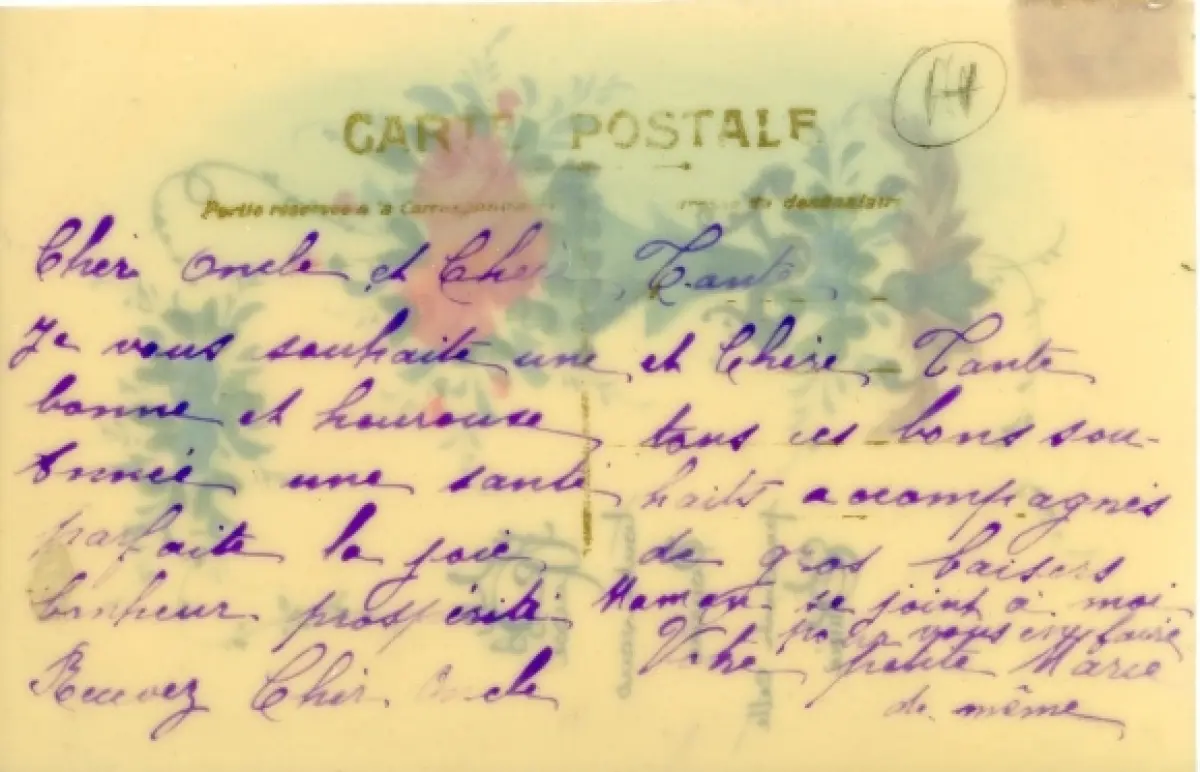 CARTE POSTALE
Partie réservée à la Correspondance
du destinataire
Cher oncle et Chère Tante
Je vous souhaite une
bonne et heureuse
Année une santé
parfaite la joie
bonheur prospérité
Recevez Cher Oncle
et Chère Tante
tous ces bons sou-
haits accompagnés
de gros baisers
Maman se joint à moi
pour vous en faire
Votre petite Marie
de même